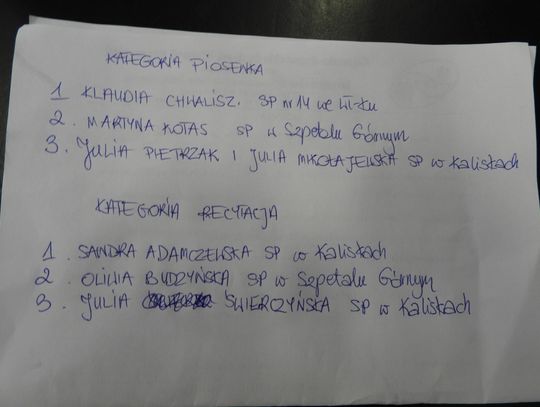 KATEGORIA PIOSENKA
1 KLAUDIA CHWALISZ. SP nr 14 we Wł-ku
2. MARTYNA KOTAS SP w Szpetalu Górnym
3. JULIA PIETRZAK I JULIA MIKOŁAJEWSKA SP w Kaliskach
KATEGORIA RECYTACJA
1. SANDRA ADAMCZEWSKA SP w Kaliskach
2. OLIWIA BUDZYŃSKA SP w Szpetalu Górnym
3. JULIA ŚWIERCZYŃSKA SP w Kaliskach